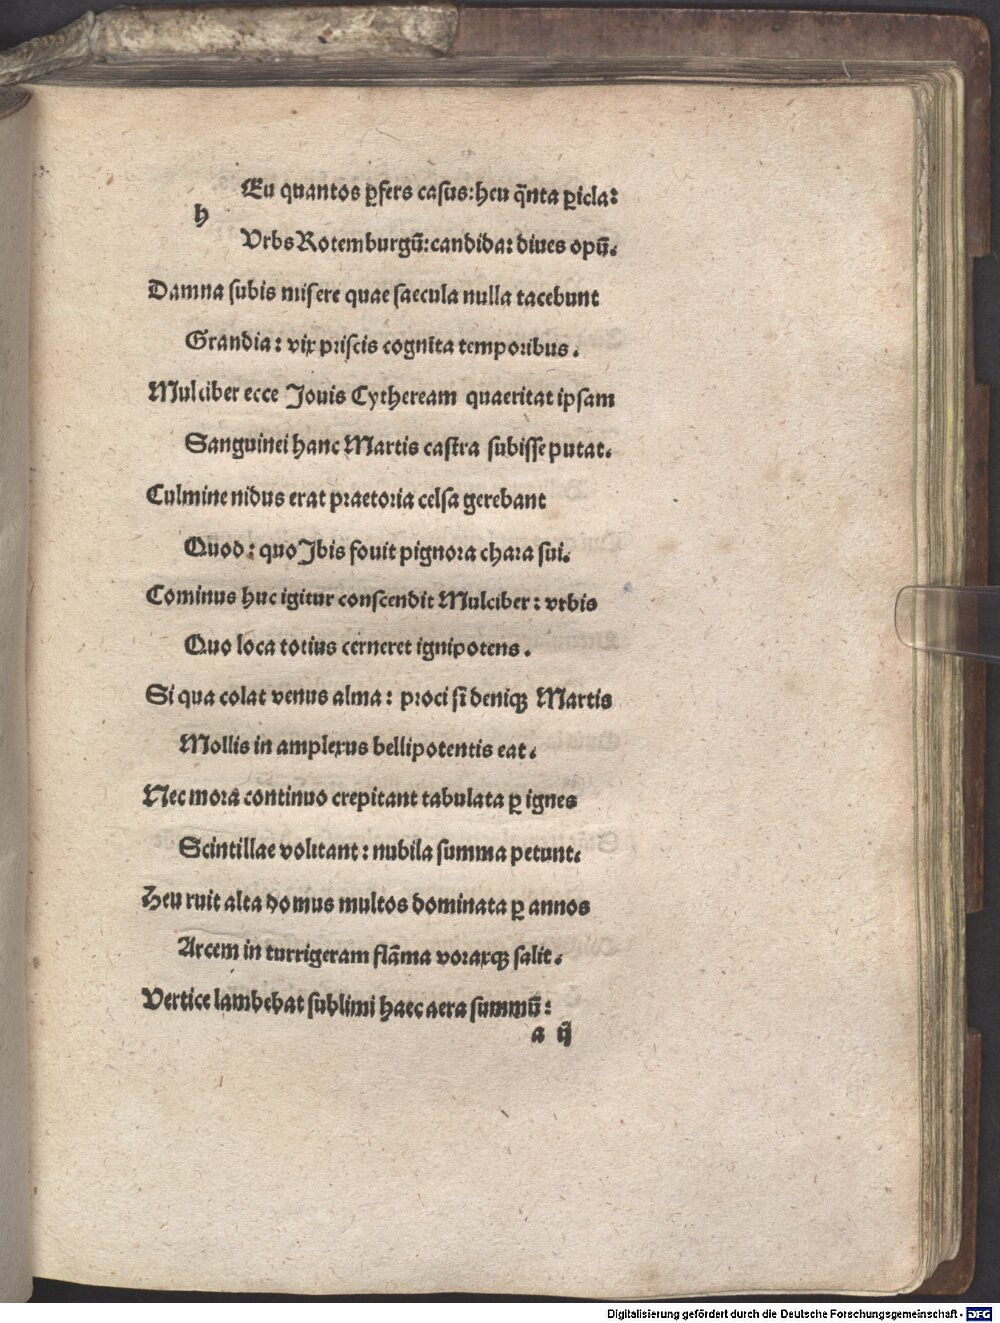 h Eu quantos ꝑfers casus: heu q̄nta ꝑicla:
Vrbs Rotemburgū: candida: diues opū.
Damna subis misere quae saecula nulla tacebunt
Grandia: vix priscis cognita temporibus.
Mulciber ecce Jouis Cytheream quaeritat ipsam
Sanguinei hanc Martis castra subisse putat.
Culmine nidus erat praetoria celsa gerebant
Quod: quo Jbis fouit pignora chara sui.
Cominus huc igitur conscendit Mulciber: vrbis
Quo loca totius cerneret ignipotens.
Si qua colat venus alma: proci sī deniqꝫ Martis
Mollis in amplexus bellipotentis eat.
Nec mora continuo crepitant tabulata ꝑ ignes
Scintillae volitant: nubila summa petunt.
Heu ruit alta domus multos dominata ꝑ annos
Arcem in turrigeram flāma voraxqꝫ salit.
Vertice lambebat sublimi haec aera summū:
a ij
Digitalisierung gefördert durch die Deutsche Forschungsgemeinschaft - DFG